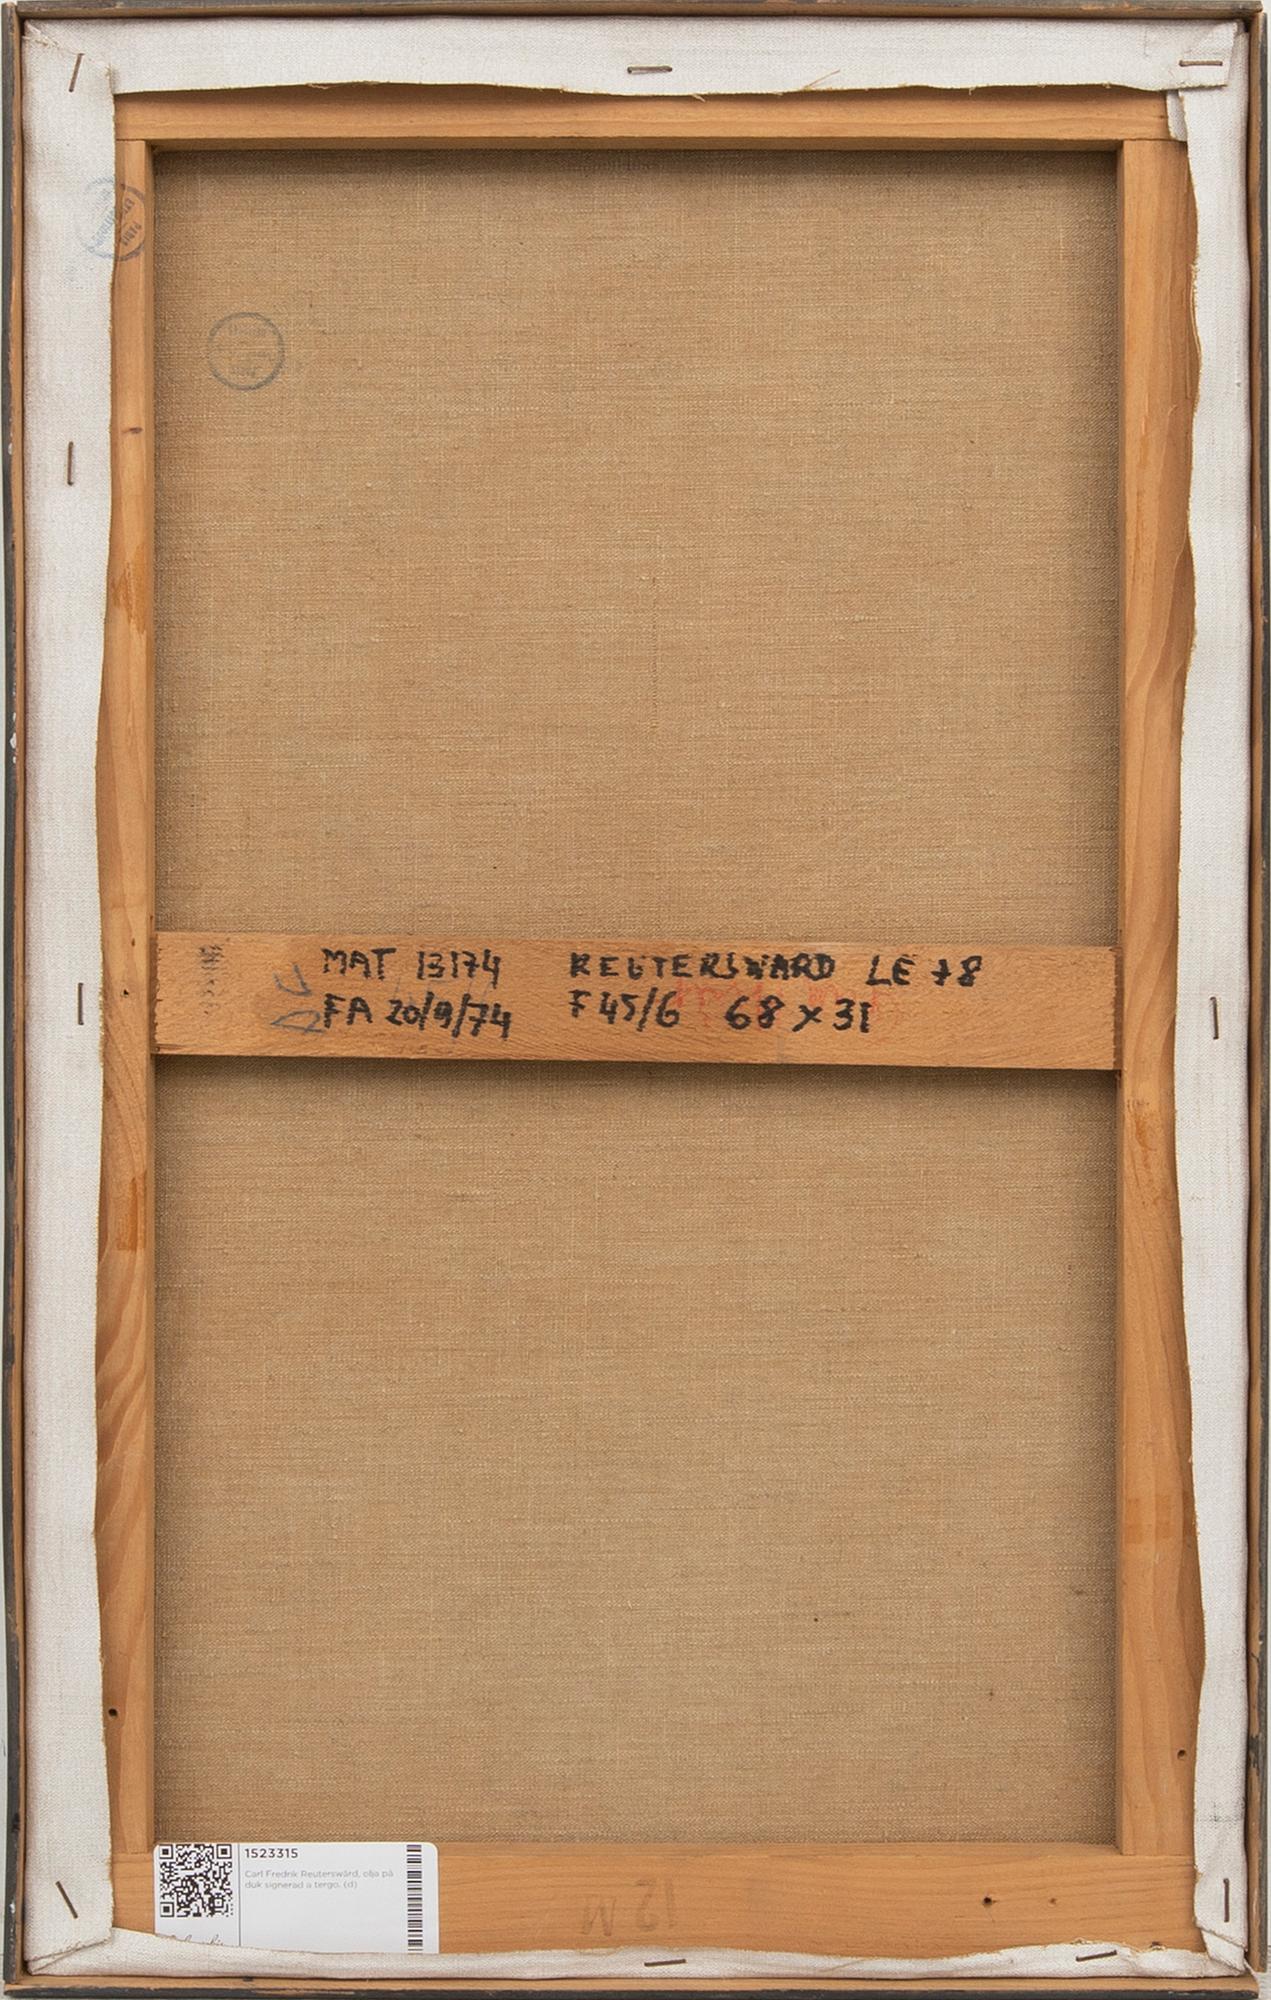 MAT 13174 REUTERSWARD LE 78
FA 20/9/74 F45/6 68 x 31
1523315
Carl Fredrik Reuterswärd, olja på
duk signerad a tergo. (d)
12 M